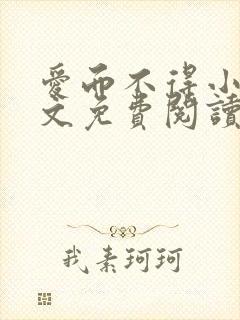 愛而不得小
文免費閱讀
我素珂珂